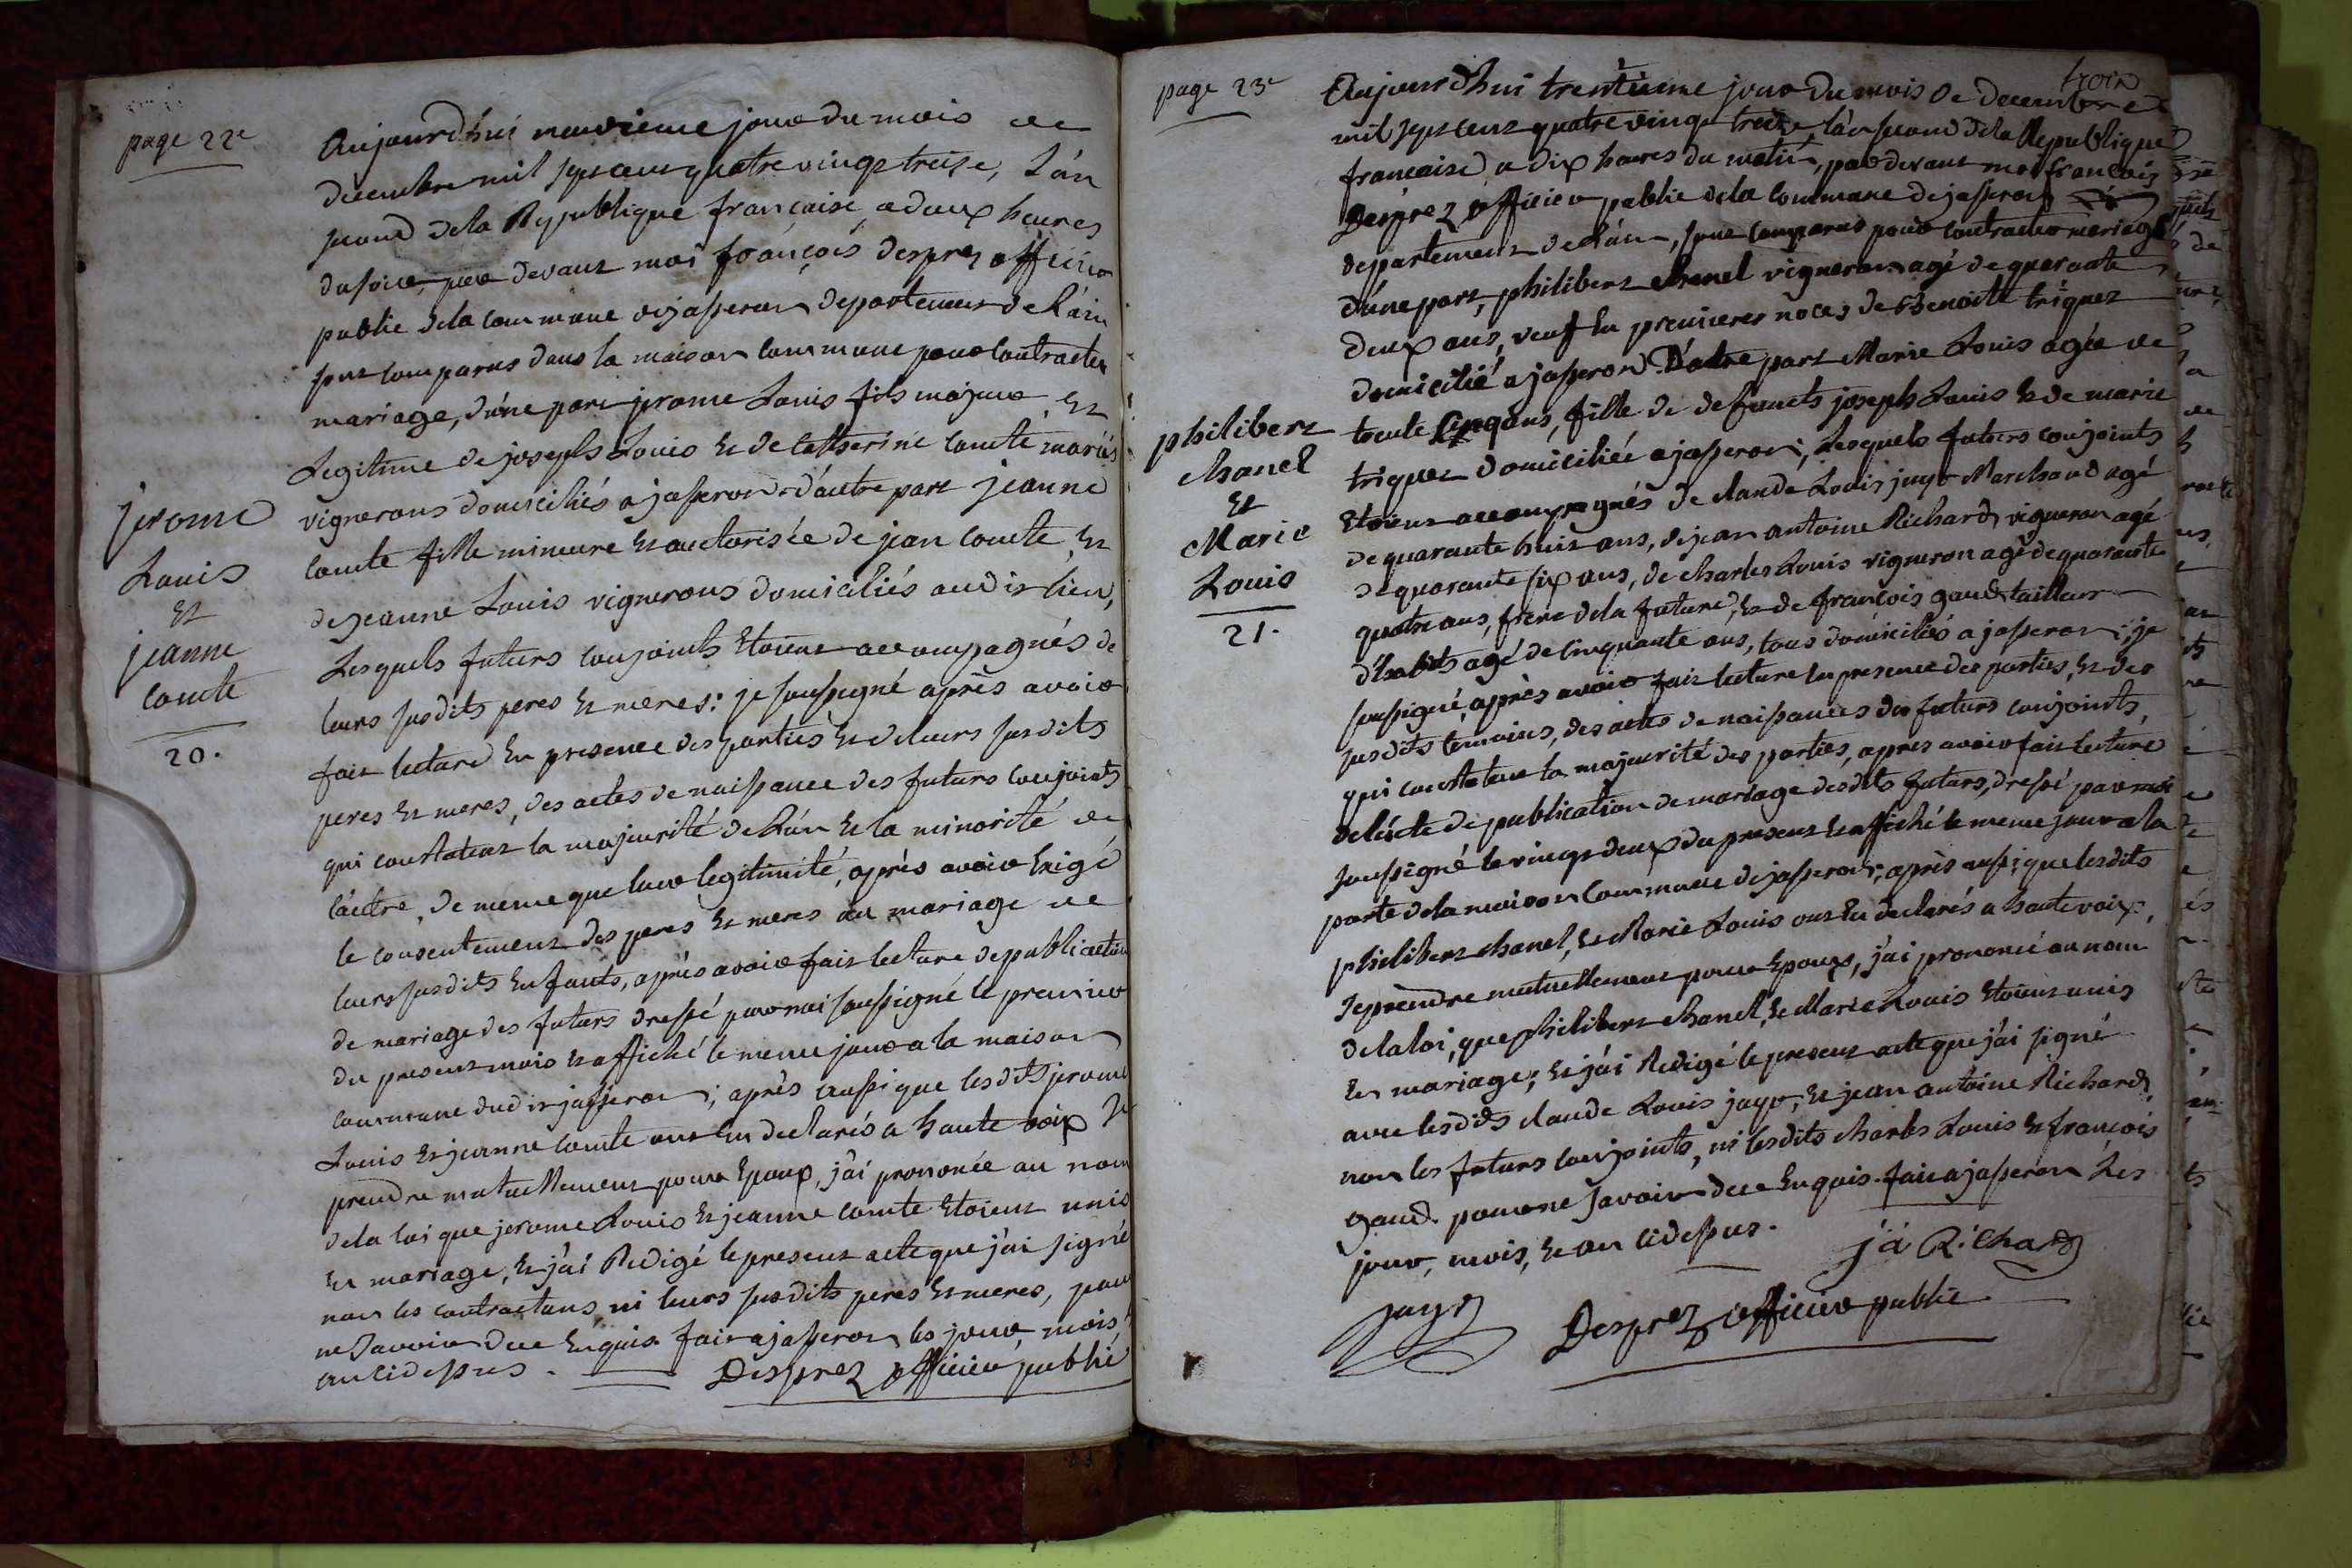 page 22e
Aujourd'hui neuvieme jour du mois de
decembre mil sept cent quatre vingt treize, l'an
second de la Republique francaise, a deux heures
du soir, par devant moi françois desprez officier
public de la commune de jasseron departement de l'ain
sont comparus dans la maison commune pour contracter
mariage, d'une part jerome Louis fils majeur et
Legitime de joseph Louis et de Catherine comte mariés
vignerons domiciliés a jasseron. d'autre part jeanne
comte fille mineure et auctorisée de jean comte et
de jeanne Louis vignerons domiciliés au dit lieu,
Lesquels futurs conjoints etoient accompagnés de
leurs susdits peres et meres: je soussigné après avoir
fait lecture en presence des parties et de leurs susdits
peres et meres, des actes de naissance des futurs conjoints
qui constatent la majeurité de l'un et la minorité de
l'autre, de meme que leur legitimité, après avoir exigé
le consentement des peres et meres au mariage de
leurs susdits enfants, après avoir fait lecture de publication
de mariage des futurs dressé par moi soussigné le premier
du present mois et affiché le meme jour a la maison
commune dudit jasseron; après aussi que lesdits jerome
Louis et jeanne comte ont eu declarés a haute voix se
prendre mutuellement pour epoux, j'ai prononcée au nom
de la loi que jerome Louis et jeanne comte etoient unis
en mariage, et j'ai Redigé le present acte que j'ai signé
non les contractans, ni leurs susdits peres et meres, pour
ne savoir de ce enquis. fait a jasseron les jour, mois,
an cidessus. Desprez officier public
jerome
Louis
et
jeanne
comte
20.
page 23e
trois
Aujourd'hui trentieme jour du mois de decembre
mil sept cent quatre vingt treize, l'an second de la Republique
francaise a dix heures du matin, par devant moi françois
Desprez officier public de la commune de jasseron
departement de l'ain, sont comparus pour contracter mariage
d'une part, philibert chanel vigneron agé de quarante
deux ans, veuf en premieres noces de Benoite triquet
domicilié a jasseron. D'autre part Marie Louis agée de
trente cinq ans, fille de defuncts joseph Louis et de marie
triquet domiciliée a jasseron, Lesquels futurs conjoints
etoient accompagnés de claude Louis jayr Marchand agé
de quarante huit ans, de jean antoine Richard vigneron agé
de quarante six ans, de charles Louis vigneron agé de quarante
quatre ans, frere de la future, et de françois gaud tailleur
d'habits agé de cinquante ans, tous domiciliés a jasseron; je
soussigné après avoir fait lecture en presence des parties, et des
susdits temoins, des actes de naissances des futurs conjoints,
qui constatent la majeurité des parties, apres avoir fait lecture
de l'acte de publication de mariage desdits futurs, dressé par moi
soussigné le vingt deux du present et affiché le meme jour a la
porte de la maison commune de jasseron; après aussi que lesdits
philibert chanel, et Marie Louis ont eu declarés a haute voix,
se prendre mutuellement pour epoux, j'ai prononcé au nom
de la loi, que philibert chanel, et Marie Louis etoient unis
en mariage; et j'ai Redigé le present acte que j'ai signé
avec lesdits claude Louis jayr, et jean antoine Richard,
non les futurs conjoints, ni lesdits charles Louis et françois
gaud. pour ne savoir de ce enquis. fait a jasseron Les
jour, mois, et an cidessus.
j'a Richard
jayr
Desprez officier public
philibert
chanel
et
Marie
Louis
21.